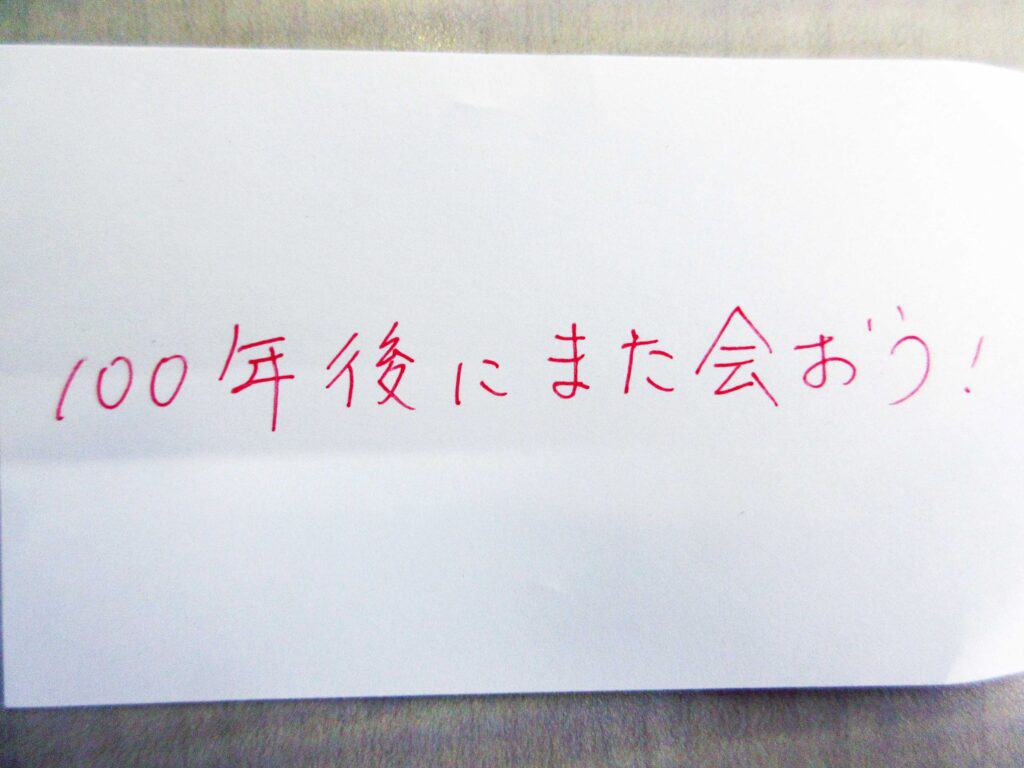 100年後にまた会おう!